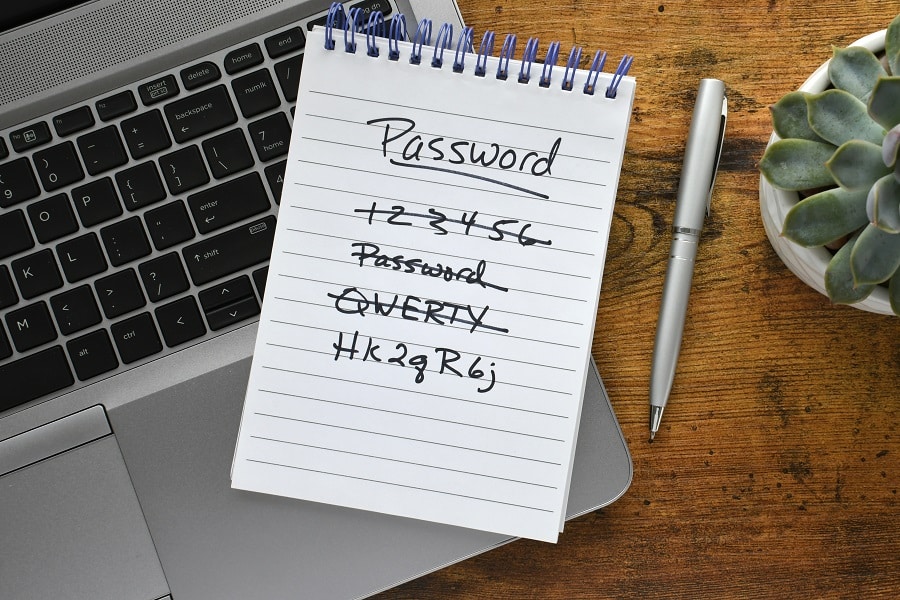 Password
123456
Password
QWERTY
Hk2qR6j
insert
delete
home
end
backspace
numlk
7
home
enter
shift
alt
ctrl
9
(
0
)
-
+
=
O
P
{
[
}
]
|
\
K
L
:
;
"
'
M
<
,
>
.
?
/